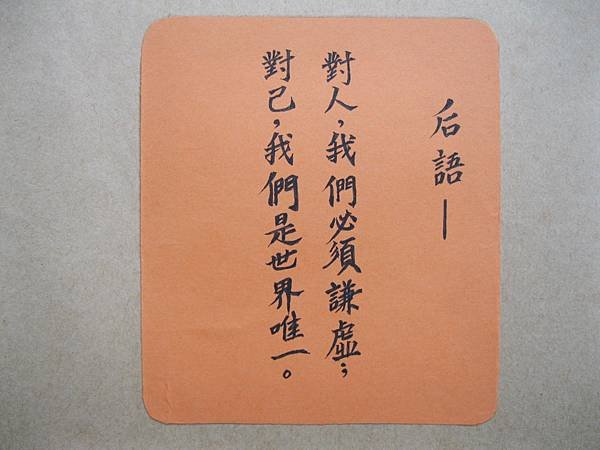 后語—
對人,我們必須謙虛;
對己,我們是世界唯一。